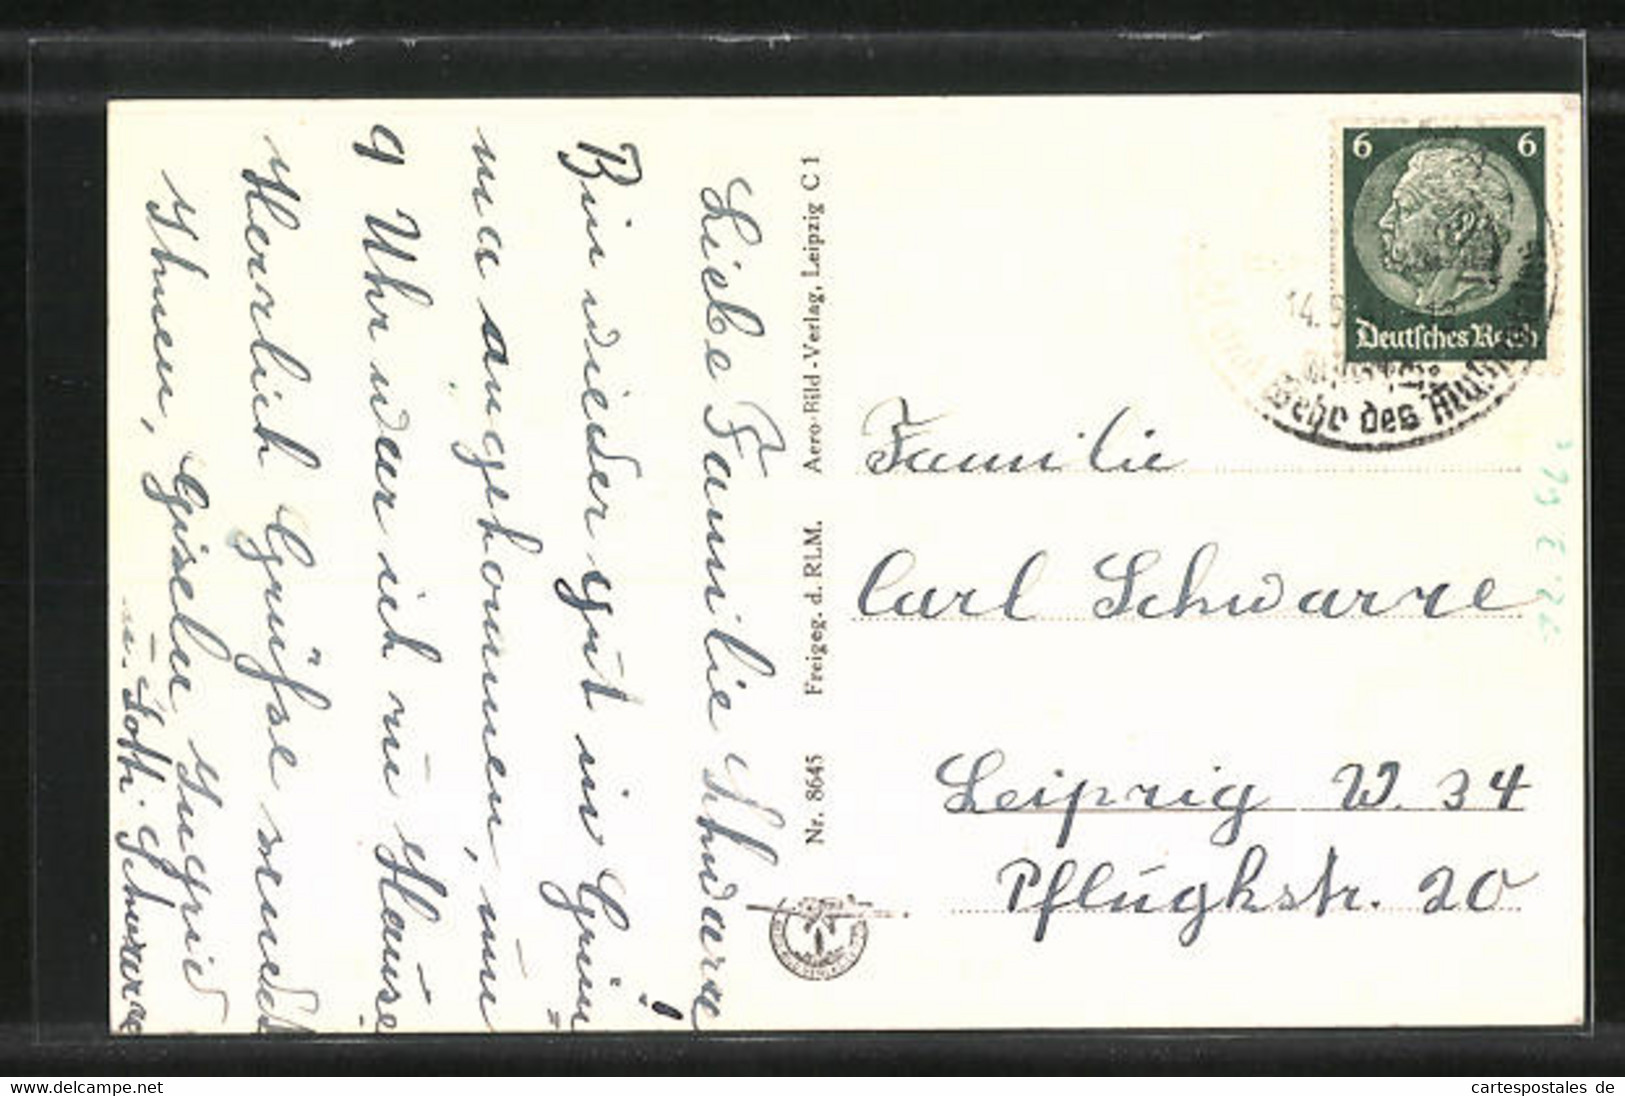 Liebe Familie Schwarze!
Bin wieder gut in Grim=
ma angekommen, um
9 Uhr war ich zu Hause.
Herrlich Grüße sendet
Ihnen, Gisela Ingrid
u. Lotti. Schwarze
Nr. 8645 Freigeg. d. RLM. Aero-Bild-Verlag, Leipzig C 1
6 6
Deutsches Reich
14.
Wehr des
Familie
Carl Schwarze
Leipzig W. 34
Pflugkstr. 20
cartespostales.com
cartespostales de